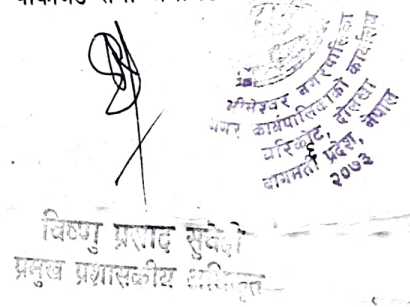 भीमेश्वर नगरपालिका
नगर कार्यपालिकाको कार्यालय
चरिकोट, दोलखा
बागमती प्रदेश, नेपाल
२०७३
विष्णु प्रसाद सुवेदी
प्रमुख प्रशासकीय अधिकृत